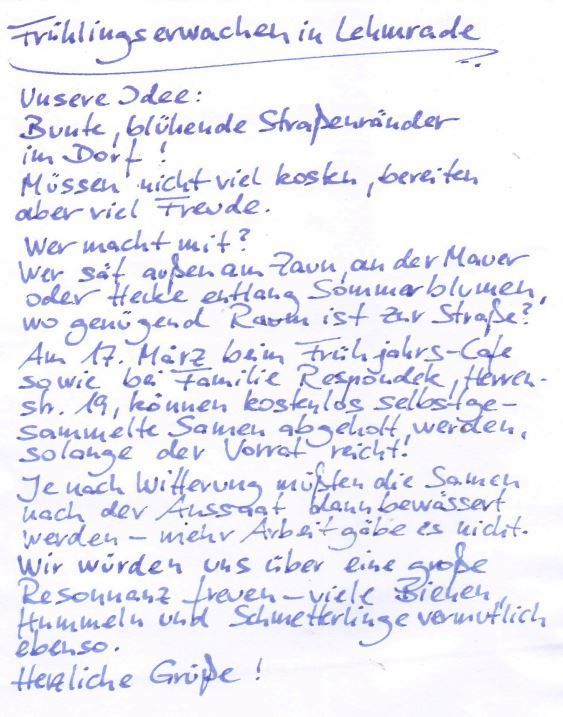 Frühlingserwachen in Lehmrade
Unsere Idee:
Bunte, blühende Straßenränder
im Dorf!
Müssen nicht viel kosten, bereiten
aber viel Freude.
Wer macht mit?
Wer sät außen am Zaun, an der Mauer
oder Hecke entlang Sommerblumen,
wo genügend Raum ist zur Straße?
Am 17. März beim Frühjahrs-Cafe
sowie bei Familie Respondek, Herren-
str. 19, können kostenlos selbstge-
sammelte Samen abgeholt werden,
solange der Vorrat reicht!
Je nach Witterung müßten die Samen
nach der Aussaat dann bewässert
werden – mehr Arbeit gäbe es nicht.
Wir würden uns über eine große
Resonnanz freuen – viele Bienen,
Hummeln und Schmetterlinge vermutlich
ebenso.
Herzliche Grüße!